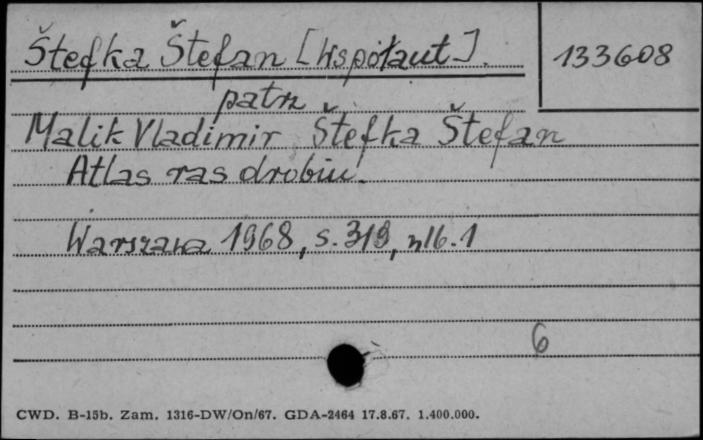 Štefka Štefan [Współaut].
133608
patrz
Malik Vladimir, Štefka Štefan
Atlas ras drobiu.
Warszawa 1968, s. 319, nlb. 1
6
CWD. B-15b. Zam. 1316-DW/On/67. GDA-2464 17.8.67. 1.400.000.